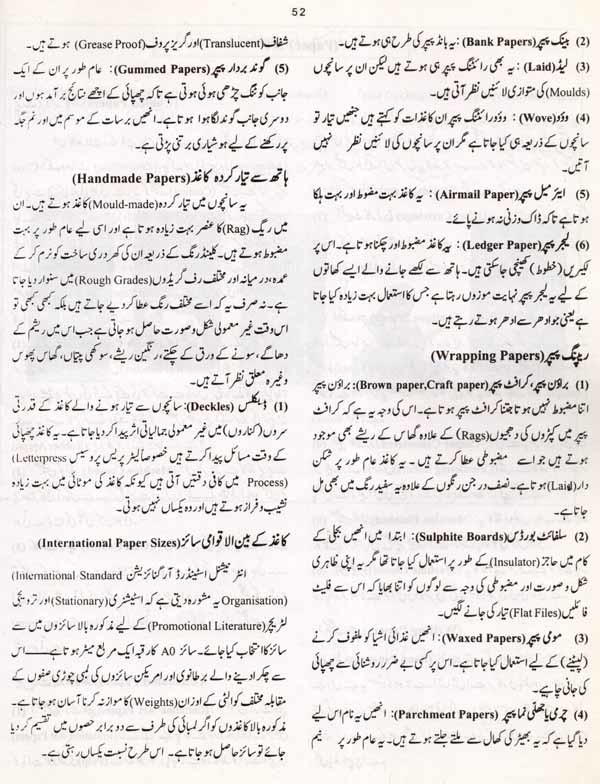 52
(2) بینک پیپر (Bank Papers): یہ بانڈ پیپر کی طرح ہی ہوتے ہیں۔
(3) لیڈ (Laid): یہ بھی رائٹنگ پیپر ہی ہوتے ہیں لیکن ان پر سانچوں
(Moulds) کی متوازی لائنیں نظر آتی ہیں۔
(4) ووو (Wove): ووو رائٹنگ پیپر ان کاغذات کو کہتے ہیں جنھیں تیار تو
سانچوں کے ذریعہ ہی کیا جاتا ہے مگر ان پر سانچوں کی لائنیں نظر نہیں
آتیں۔
(5) ایئر میل پیپر (Airmail Paper): یہ کاغذ بہت مضبوط اور بہت ہلکا
ہوتا ہے تا کہ ڈاک وزنی نہ ہونے پائے۔
(6) لیجر پیپر (Ledger Paper): یہ کاغذ مضبوط اور چکنا ہوتا ہے۔ اس پر
لکیریں (خطوط) کھینچی جاسکتی ہیں۔ ہاتھ سے لکھے جانے والے ایسے کھاتوں
کے لیے یہ لیجر پیپر نہایت موزوں رہتا ہے جس کا استعمال بہت زیادہ کیا جاتا
ہے یعنی جو ادھر سے ادھر ہوتے رہتے ہیں۔
ریپنگ پیپر (Wrapping Papers)
(1) براؤن پیپر، کرافٹ پیپر (Brown paper,Craft paper): براؤن پیپر
اتنا مضبوط نہیں ہوتا جتنا کرافٹ پیپر ہوتا ہے۔ اس کی وجہ یہ ہے کہ کرافٹ
پیپر میں کپڑوں کی دھجیوں (Rags) کے علاوہ گھاس کے ریشے بھی موجود
ہوتے ہیں جو اسے مضبوطی عطا کرتے ہیں۔ یہ کاغذ عام طور پر شکن
دار (Laid) ہوتا ہے۔ نصف درجن رنگوں کے علاوہ یہ سفید رنگ میں بھی مل
جاتا ہے۔
(2) سلفائٹ بورڈس (Sulphite Boards): ابتدا میں انھیں بجلی کے
کام میں حاجز (Insulator) کے طور پر استعمال کیا جاتا تھا مگر یہ اپنی ظاہری
شکل و صورت اور مضبوطی کی وجہ سے لوگوں کو اتنا بھایا کہ اس سے فلیٹ
فائلیں (Flat Files) تیار کی جانے لگیں۔
(3) مومی پیپر (Waxed Papers): انھیں غذائی اشیا کو ملفوف کرنے
(لپیٹنے) کے لیے استعمال کیا جاتا ہے۔ اس پر کسی بے ضرر روشنائی سے چھپائی
کی جانی چاہیے۔
(4) چرمی یا جھلی نما پیپر (Parchment Papers): انھیں یہ نام اس لیے
دیا گیا ہے کہ یہ بھیڑ کی کھال سے ملتے جلتے ہوتے ہیں۔ یہ عام طور پر نیم
شفاف (Translucent) اور گریز پروف (Grease Proof) ہوتے ہیں۔
(5) گوند بردار پیپر (Gummed Papers): عام طور پر ان کے ایک
جانب کوٹنگ چڑھی ہوئی ہوتی ہے تا کہ چھپائی کے اچھے نتائج برآمد ہوں اور
دوسری جانب گوند لگا ہوا ہوتا ہے۔ انھیں برسات کے موسم میں اور نم جگہ
پر رکھنے کے لیے ہوشیاری برتنی پڑتی ہے۔
ہاتھ سے تیار کردہ کاغذ (Handmade Papers)
یہ سانچوں میں تیار کردہ (Mould-made) کاغذ ہوتے ہیں۔ ان
میں ریگ (Rag) کا عنصر بہت زیادہ ہوتا ہے اور اسی لیے عام طور پر بہت
مضبوط ہوتے ہیں۔ کیلنڈرنگ کے ذریعہ ان کی کھردری ساخت کو نرم کر کے
عمدہ، درمیانہ اور مختلف رف گریڈوں (Rough Grades) میں سنوار دیا جاتا
ہے۔ نہ صرف یہ کہ اسے مختلف رنگ عطا کر دیے جاتے ہیں بلکہ کبھی کبھی تو
اس وقت غیر معمولی شکل و صورت حاصل ہو جاتی ہے جب اس میں ریشم کے
دھاگے، سونے کے ورق کے چکتے، رنگین ریشے، سوکھی پتیاں، گھاس پھوس
وغیرہ معلق نظر آتے ہیں۔
(1) ڈیکلس (Deckles): سانچوں سے تیار ہونے والے کاغذ کے قدرتی
سروں (کناروں) میں غیر معمولی جمالیاتی اثر پیدا کر دیا جاتا ہے۔ یہ کاغذ چھپائی
کے وقت مسائل پیدا کرتے ہیں خصوصاً لیٹر پریس پروسیس (Letterpress
Process) میں کافی دقتیں آتی ہیں کیونکہ کاغذ کی موٹائی میں بہت زیادہ
نشیب و فراز ہوتے ہیں اور وہ یکساں نہیں ہوتی۔
کاغذ کے بین الاقوامی سائز (International Paper Sizes)
انٹرنیشنل اسٹینڈرڈ آرگنائزیشن (International Standard
Organisation) یہ مشورہ دیتی ہے کہ اسٹیشنری (Stationary) اور ترویجی
لٹریچر (Promotional Literature) کے لیے مذکورہ بالا سائزوں میں سے
سائز کا انتخاب کیا جائے۔ سائز A0 کا رقبہ ایک مربع میٹر ہوتا ہے۔ اس
سے چکرا دینے والے برطانوی اور امریکن سائزوں کی لمبی چوڑی صفوں کے
مقابلہ مختلف کوالٹی کے اوزان (Weights) کا موازنہ کرنا آسان ہو جاتا ہے۔
مذکورہ بالا کاغذوں کو اگر لمبائی کی طرف سے دو برابر حصوں میں تقسیم کر دیا
جائے تو سائز حاصل ہو جاتا ہے۔ اس طرح نسبت یکساں رہتی ہے۔